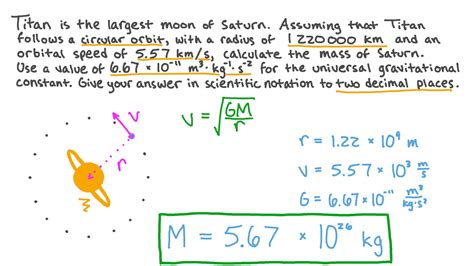 Titan is the largest moon of Saturn. Assuming that Titan
follows a circular orbit, with a radius of 1 220 000 km and an
orbital speed of 5.57 km/s, calculate the mass of Saturn.
Use a value of 6.67 × 10⁻¹¹ m³·kg⁻¹·s⁻² for the universal gravitational
constant. Give your answer in scientific notation to two decimal places.
v = √(GM/r)
v
r
M
r = 1.22 × 10⁹ m
v = 5.57 × 10³ m/s
G = 6.67 × 10⁻¹¹ m³/kg·s²
M = 5.67 × 10²⁶ kg